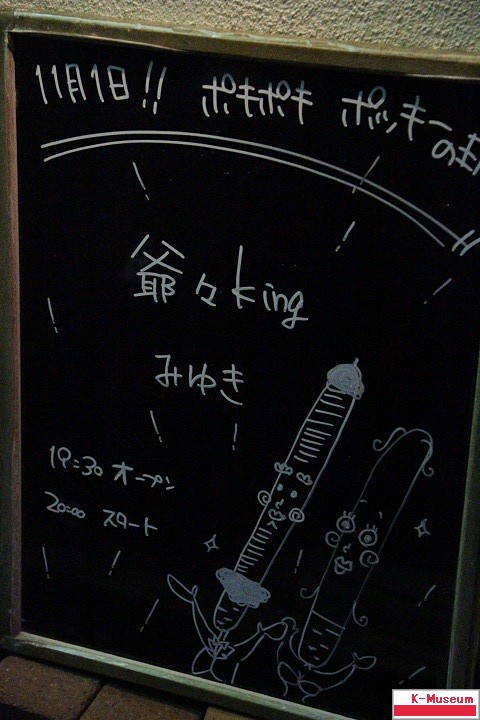 11月1日!! ポキポキ ポッキー
の
爺々king
みゆき
19:30 オープン
20:00 スタート
K-Museum